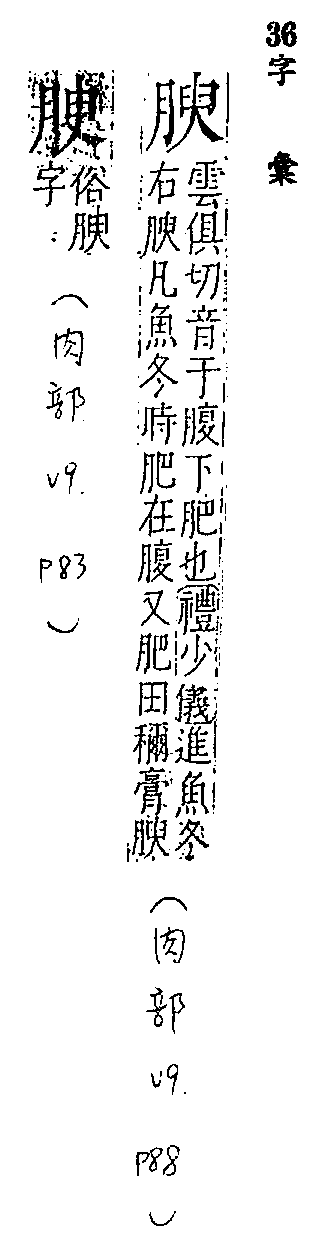 36字彙
腴
雲俱切音于腹下肥也禮少儀進魚冬
右腴凡魚冬時肥在腹又肥田穪膏腴
(肉部 v9. P88)
俗腴
字
(肉部 v9. P83)